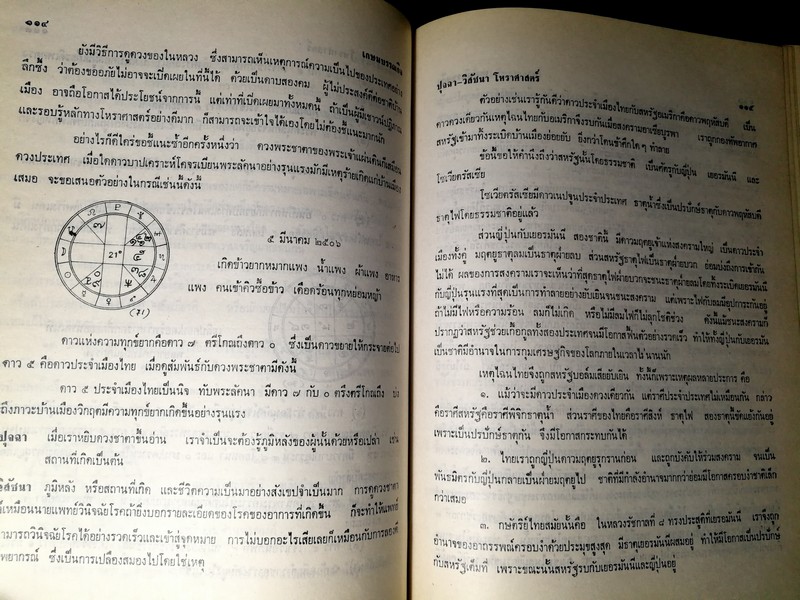 ๑๑๔
เกษมบรรณกิจ
ยังมีวิธีการดูดวงของในหลวง ซึ่งสามารถเห็นเหตุการณ์ความเป็นไปของประเทศอย่าง
ลึกซึ้ง ว่าต้องขออภัยไม่อาจจะเปิดเผยในที่นี้ได้ ด้วยเป็นดาบสองคม ผู้ไม่ประสงค์ดีต่อชาติบ้าน
เมือง อาจถือโอกาสได้ประโยชน์จากการนี้ แต่เท่าที่เปิดเผยมาทั้งหมดนี้ ถ้าเป็นผู้มีเชาวน์ปฏิภาณ
และรอบรู้หลักทางโหราศาสตร์อย่างดีมาก ก็สามารถจะเข้าใจได้เองโดยไม่ต้องชี้แนะมากนัก
อย่างไรก็ดีใคร่ขอชี้แนะซ้ำอีกครั้งหนึ่งว่า ดวงพระชาตาของพระเจ้าแผ่นดินก็เสมือน
ดวงประเทศ เมื่อใดดาวบาปเคราะห์โคจรเบียนพระลัคนาอย่างรุนแรงมักมีเหตุร้ายเกิดแก่บ้านเมือง
เสมอ จะขอเสนอตัวอย่างในกรณีเช่นนี้ดังนี้
๕ มีนาคม ๒๕๐๖
21°
เกิดข้าวยากหมากแพง น้ำแพง ผ้าแพง อาหาร
แพง คนเข้าคิวซื้อข้าว เดือดร้อนทุกหย่อมหญ้า
ดาวแห่งความทุกข์ยากคือดาว ๗ ตรีโกณถึงดาว ๐ ซึ่งเป็นดาวขยายให้กระจายต่อไป
ดาว ๕ คือดาวประจำเมืองไทย เมื่อดูสัมพันธ์กับดวงพระชาตามีดังนี้
ดาว ๕ ประจำเมืองไทยเป็นนิจ ทับพระลัคนา มีดาว ๗ กับ ๐ ตรึงตรีโกณถึง บ่ง
ถึงภาวะบ้านเมืองวิกฤตมีความทุกข์ยากเกิดขึ้นอย่างรุนแรง
ปุจฉา เมื่อเราหยิบดวงชาตาขึ้นอ่าน เราจำเป็นจะต้องรู้ภูมิหลังของผู้นั้นด้วยหรือเปล่า เช่น
สถานที่เกิดเป็นต้น
วิสัชนา ภูมิหลัง หรือสถานที่เกิด และชีวิตความเป็นมาอย่างสังเขปจำเป็นมาก การดูดวงชาตา
ก็เหมือนนายแพทย์วินิจฉัยโรคถ้ายิ่งบอกรายละเอียดของโรคของอาการที่เกิดขึ้น ก็จะทำให้แพทย์
สามารถวินิจฉัยโรคได้อย่างรวดเร็วและเข้าสู่จุดหมาย การไม่บอกอะไรเสียเลยก็เหมือนกับการลองดี
พยากรณ์ ซึ่งเป็นการเปลืองสมองไปโดยใช่เหตุ
ปุจฉา-วิสัชนา โหราศาสตร์
๑๑๕
ตัวอย่างเช่นเรารู้กันดีว่าดาวประจำเมืองไทยกับสหรัฐอเมริกาคือดาวพฤหัสบดี เป็น
ดาวดวงเดียวกันเหตุไฉนไทยกับอเมริกาจึงรบกันเมื่อสงครามอาเซียบูรพา เราถูกกองทัพอากาศ
สหรัฐเข้ามาทิ้งระเบิดบ้านเมืองย่อยยับ ยิ่งกว่าโดนข้าศึกใด ๆ ทำลาย
ข้อนี้ขอให้คำนึงถึงว่าสหรัฐนั้นโดยธรรมชาติ เป็นศัตรูกับญี่ปุ่น เยอรมันนี และ
โซเวียตรัสเซีย
โซเวียตรัสเซียมีดาวเนปจูนประจำประเทศ ธาตุน้ำซึ่งเป็นปรปักษ์ธาตุกับดาวพฤหัสบดี
ธาตุไฟโดยธรรมชาติอยู่แล้ว
ส่วนญี่ปุ่นกับเยอรมันนี สองชาตินี้ มีดาวมฤตยูเจ้าแห่งสงครามใหญ่ เป็นดาวประจำ
เมืองทั้งคู่ มฤตยูธาตุลมเป็นธาตุฝ่ายลบ ส่วนสหรัฐธาตุไฟเป็นธาตุฝ่ายบวก ย่อมบ่งถึงการเข้ากัน
ไม่ได้ ผลของการสงครามเราจะเห็นว่าที่สุดธาตุไฟฝ่ายบวกจะชนะธาตุฝ่ายลมโดยทิ้งระเบิดเยอรมันนี
กับญี่ปุ่นรุนแรงที่สุดเป็นการทำลายอย่างยับเยินจนชนะสงคราม แต่เพราะไฟกับลมมีอุปการะกันอยู่
ถ้าไม่มีไฟหรือความร้อน ลมก็ไม่เกิด หรือไม่มีลมไฟก็ไม่ลุกโชติช่วง ดังนั้นแม้ชนะสงครามก็
ปรากฏว่าสหรัฐช่วยเกื้อกูลทั้งสองประเทศจนมีโอกาสฟื้นตัวอย่างรวดเร็ว ทำให้ทั้งญี่ปุ่นกับเยอรมัน
เป็นชาติมีอำนาจในการกุมเศรษฐกิจของโลกภายในเวลาไม่นานนัก
เหตุไฉนไทยจึงถูกสหรัฐบอล์มเสียยับเยิน ทั้งนี้ก็เพราะเหตุผลหลายประการ คือ
๑. แม้ว่าจะมีดาวประจำเมืองดวงเดียวกัน แต่ราศีประจำประเทศไม่เหมือนกัน กล่าว
คือราศีสหรัฐคือราศีพิจิกธาตุน้ำ ส่วนราศีของไทยคือราศีสิงห์ ธาตุไฟ สองธาตุนี้ขัดแย้งกันอยู่
เพราะเป็นปรปักษ์ธาตุกัน จึงมีโอกาสกระทบกันได้
๒. ไทยเราถูกญี่ปุ่นดาวมฤตยูรุกรานก่อน และถูกบังคับให้ร่วมสงคราม จนเป็น
พันธมิตรกับญี่ปุ่นกลายเป็นฝ่ายมฤตยูไป ชาติที่มีกำลังอำนาจมากกว่าย่อมมีโอกาสครอบงำชาติเล็ก
กว่าเสมอ
๓. กษัตริย์ไทยสมัยนั้นคือ ในหลวงรัชกาลที่ ๘ ทรงประสูติที่เยอรมันนี เราจึงถูก
อำนาจของอาถรรพณ์ครอบงำด้วยประมุขสูงสุด มีธาตุเยอรมันนีผสมอยู่ ทำให้มีโอกาสเป็นปรปักษ์
กับสหรัฐเต็มที่ เพราะขณะนั้นสหรัฐรบกับเยอรมันนีและญี่ปุ่นอยู่